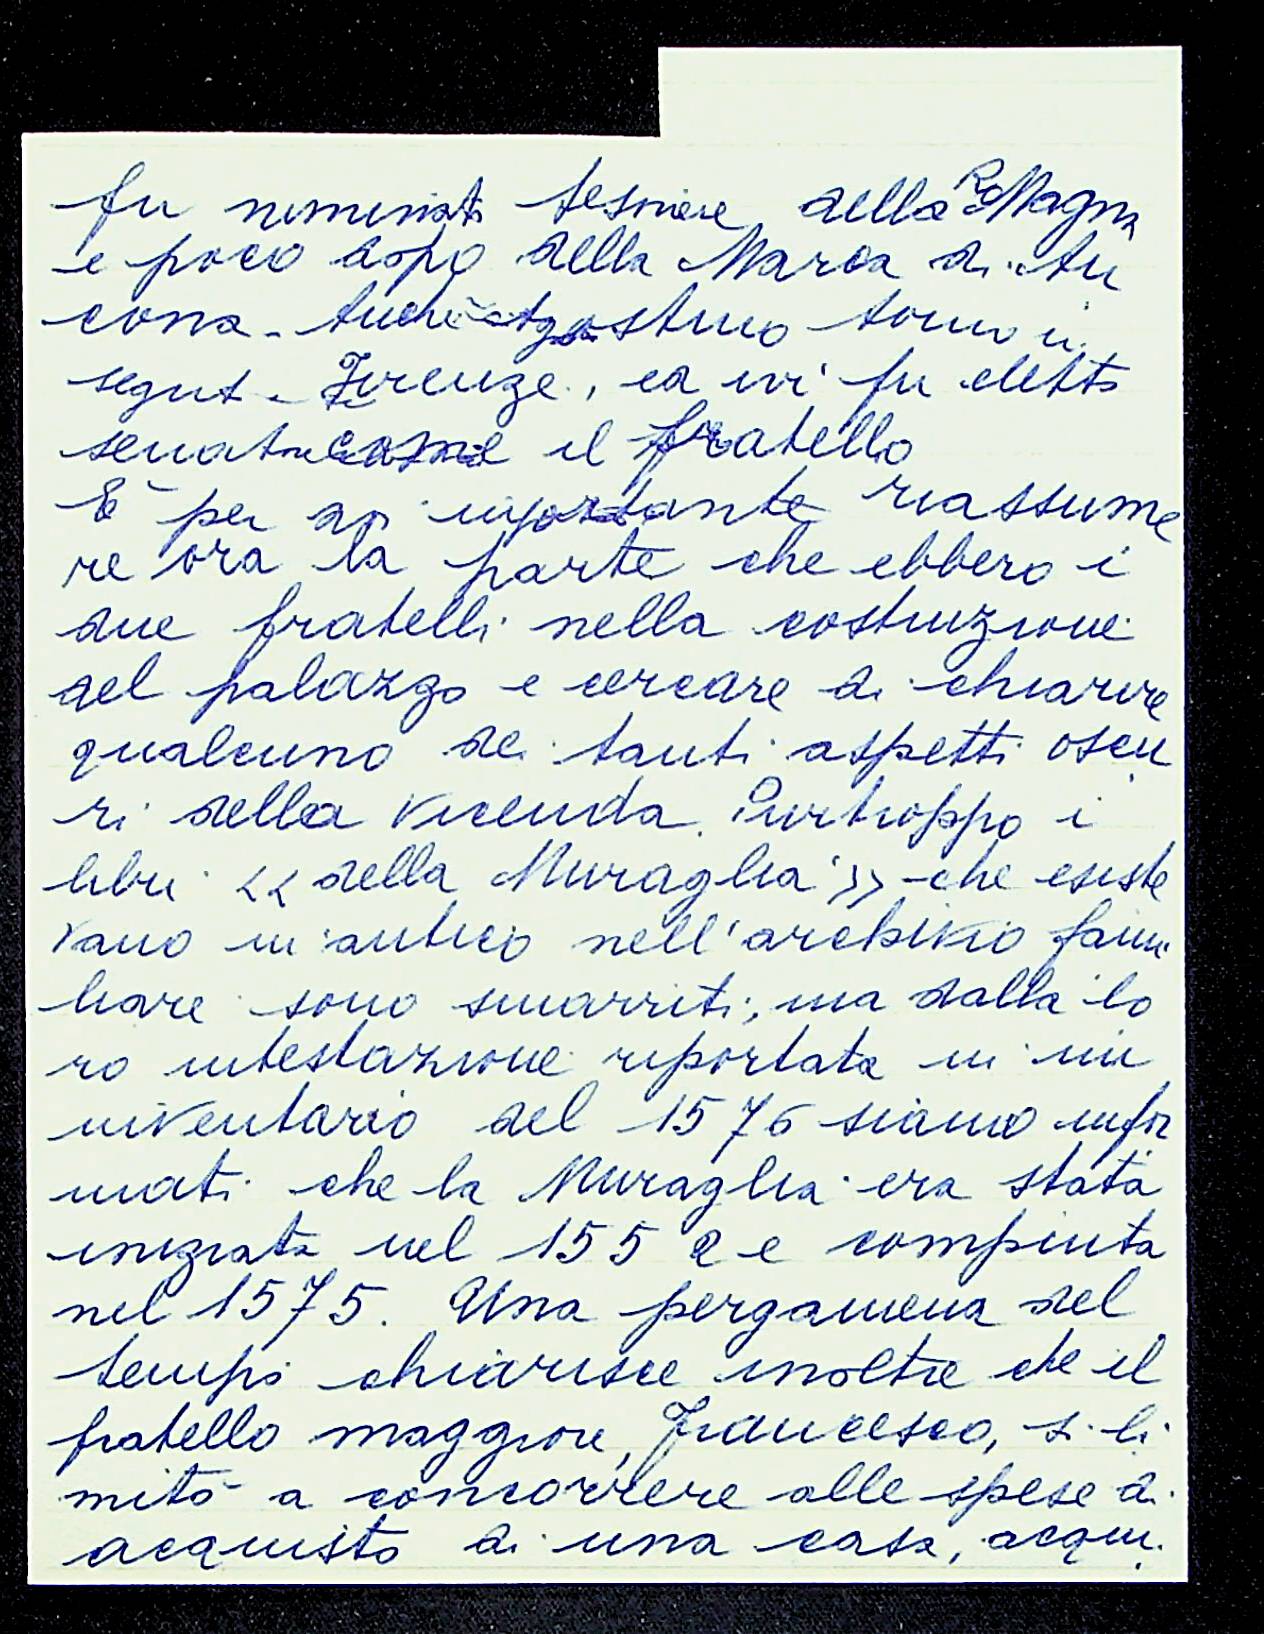 fu nominato tesoriere della RoMagna
e poco dopo della Marca di An
cona. Anche Agostino tornò in
seguito Firenze, ed ivi fu eletto
senatore come il fratello
È per noi importante riassume
re ora la parte che ebbero i
due fratelli nella costruzione
del palazzo e cercare di chiarire
qualcuno dei tanti aspetti oscu
ri della vicenda. Purtroppo i
libri << della Muraglia >> che esiste
vano in antico nell'archivio fami
liare sono smarriti; ma dalla lo
ro intestazione riportata in un
inventario del 1576 siamo infor
mati che la Muraglia era stata
iniziata nel 1552 e compiuta
nel 1575. Una pergamena del
tempo chiarisce inoltre che il
fratello maggiore, Francesco, si li
mitò a concorrere alle spese di
acquisto di una casa, acqui